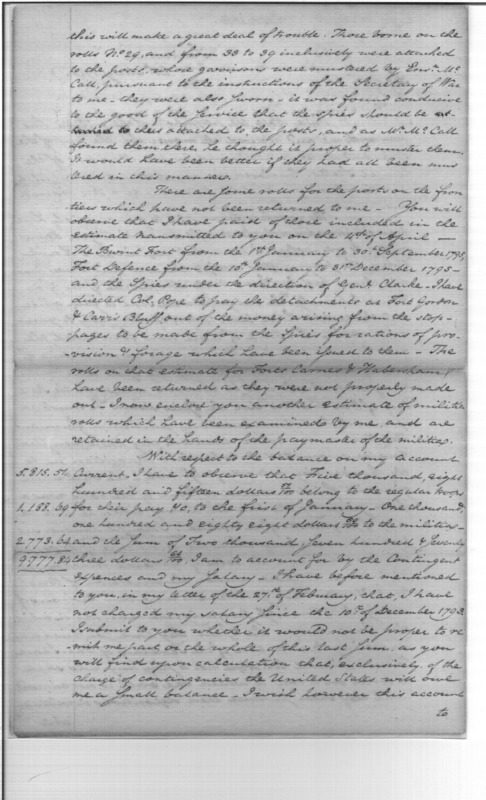 this will make a great deal of trouble. Those borne on the
rolls No. 29, and from 33 to 39 inclusively were attached
to the posts, whose garrisons were mustered by Ensn. Mc
Call, pursuant to the instructions of the Secretary of War
to me. they were also sworn. it was found conducive
to the good of the service that the spies should be
attached to the posts, and as Mr. McCall
found them there, he thought it proper to muster them.
It would have been better if they had all been mus
tered in this manner.
There are some rolls for the posts on the fron
tiers which have not been returned to me - You will
observe that I have paid of those included in the
estimate transmitted to you on the 4th of April —
The Burnt Fort from the 1st January to 30th September 1795,
Fort Defence from the 10th January to 31st December 1795 -
and the Spies under the direction of Genl. Clarke - I have
directed Col. Pope to pay the detachments at Fort Gordon
& Carr's Bluff, out of the money arising from the stop-
pages to be made from the Spies for rations of pro-
-vision & forage which have been issued to them - The
rolls on that estimate for Forts Carnes & Habersham,
have been returned as they were not properly made
out - I now enclose you another estimate of militia
rolls which have been examined by me, and are
retained in the hands of the paymaster of the militia.
With respect to the balance on my account
5.815.51 Current, I have to observe that Five thousand, eight
hundred and fifteen dollars belong to the regular troops
1,188.39 for their pay &c, to the first of January - One thousand,
one hundred and eighty eight dollars to the militia -
2.773.64 and the sum of Two thousand, Seven hundred & Seventy
9,777.54 three dollars, I am to account for by the Contingent
expences and my Salary - I have before mentioned
to you, in my letter of the 27th of February, that, I have
not charged my salary since the 10th of December 1793.
I submit to you whether it would not be proper to re
mit me part or the whole of this last sum, as you
will find upon calculation that, exclusively, of the
charge of contingencies the United States will owe
me a small balance - I wish however this account
to